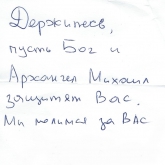 Держитесь,
пусть Бог и
Архангел Михаил
защитят Вас.
Ми молимся за ВАС